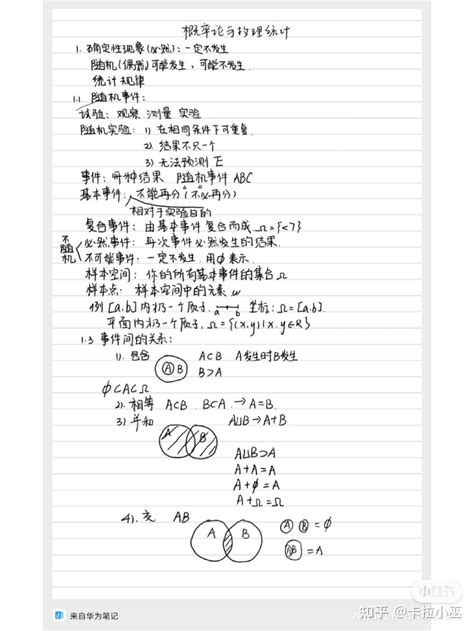 概率论与数理统计
1. 确定性现象(必然): 一定不发生
随机(偶然) 可能发生, 可能不发生.
统计规律
1.1 随机事件:
试验: 观察 测量 实验
随机实验: 1) 在相同条件下可重复.
2) 结果不只一个
3) 无法预测 E
事件: 每种结果 随机事件 ABC
基本事件: 不能再分 (不必再分)
相对于实验目的
复合事件: 由基本事件复合而成. Ω={<7}
不随机
必然事件: 每次事件必然发生的结果.
不可能事件: 一定不发生. 用Φ表示.
样本空间: 你的所有基本事件的集合Ω
样本点: 样本空间中的元素 w
例 [a.b] 内扔一个质子. a b 坐标: Ω=[a.b].
平面内扔一个质子. Ω={(x.y)|x.y∈R}
1.3 事件间的关系:
1). 包含 A⊂B A发生时B发生
A B B⊃A
Φ⊂A⊂Ω
2). 相等 A⊂B. B⊂A. → A=B.
3) 并和 A∪B → A+B
A B
A∪B⊃A
A+A=A
A+Φ=A
A+Ω=Ω
4). 交 AB
A B
A B =Φ
AB =A
来自华为笔记
小红书
知乎 @卡拉小巫